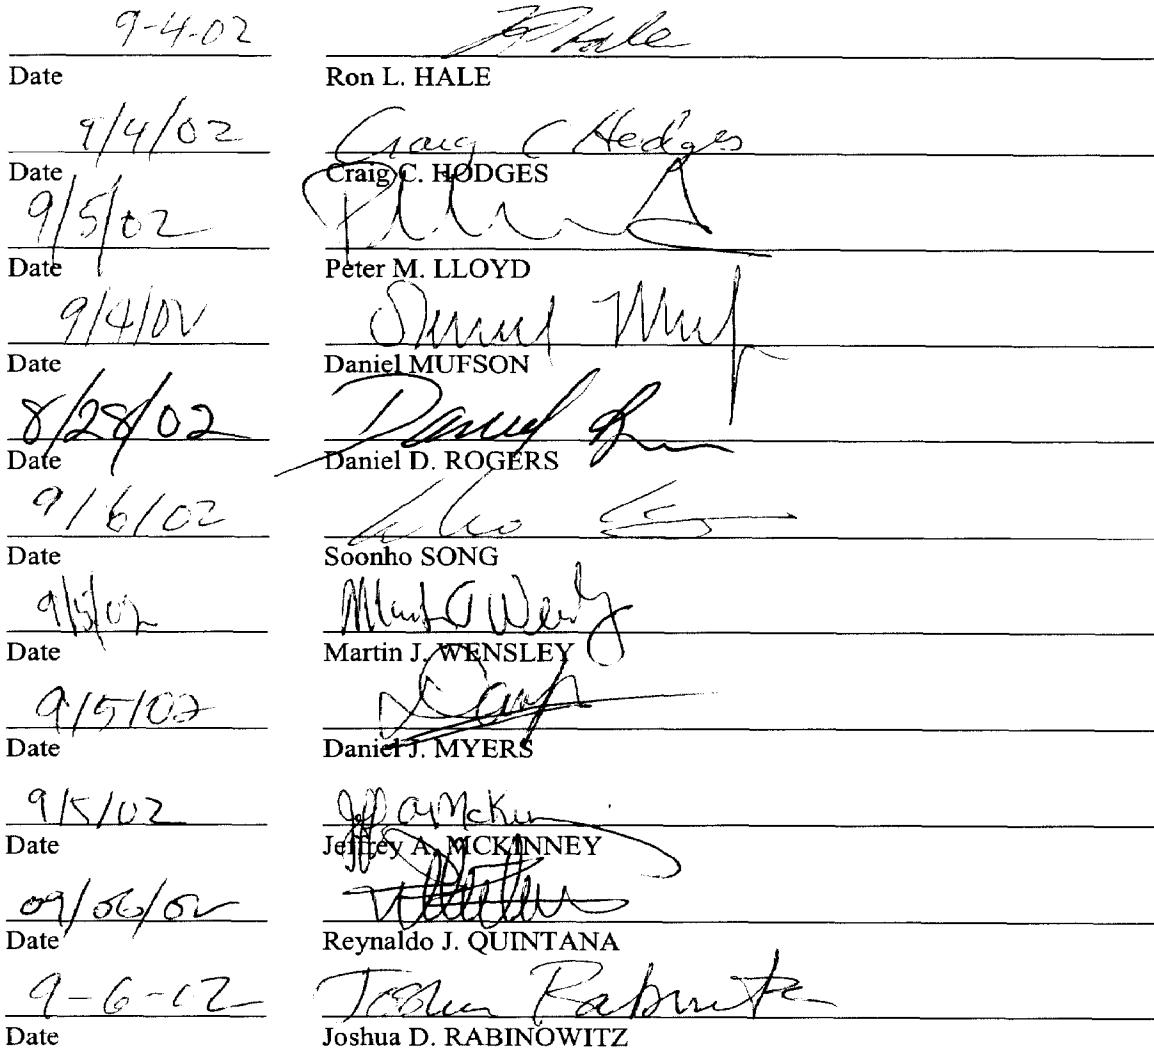 9-4-02 RHale
Date Ron L. HALE
9/4/02 Craig C Hodges
Date Craig C. HODGES
9/5/02
Date Peter M. LLOYD
9/4/02 Daniel Muf
Date Daniel MUFSON
8/28/02 Daniel
Date Daniel D. ROGERS
9/6/02
Date Soonho SONG
9/5/02 Martin J Wensly
Date Martin J. WENSLEY
9/5/02
Date Daniel J. MYERS
9/5/02 Jeff A McKinney
Date Jeffrey A. MCKINNEY
09/06/02
Date Reynaldo J. QUINTANA
9-6-02 Joshua Rabinowitz
Date Joshua D. RABINOWITZ